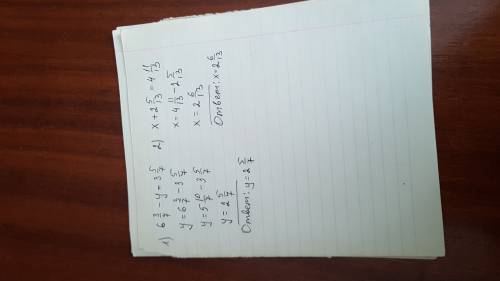 1) 6 3/7 - y = 3 5/7
y = 6 3/7 - 3 5/7
y = 5 10/7 - 3 5/7
y = 2 5/7
Ответ: y = 2 5/7
2) x + 2 5/13 = 4 11/13
x = 4 11/13 - 2 5/13
x = 2 6/13
Ответ: x = 2 6/13